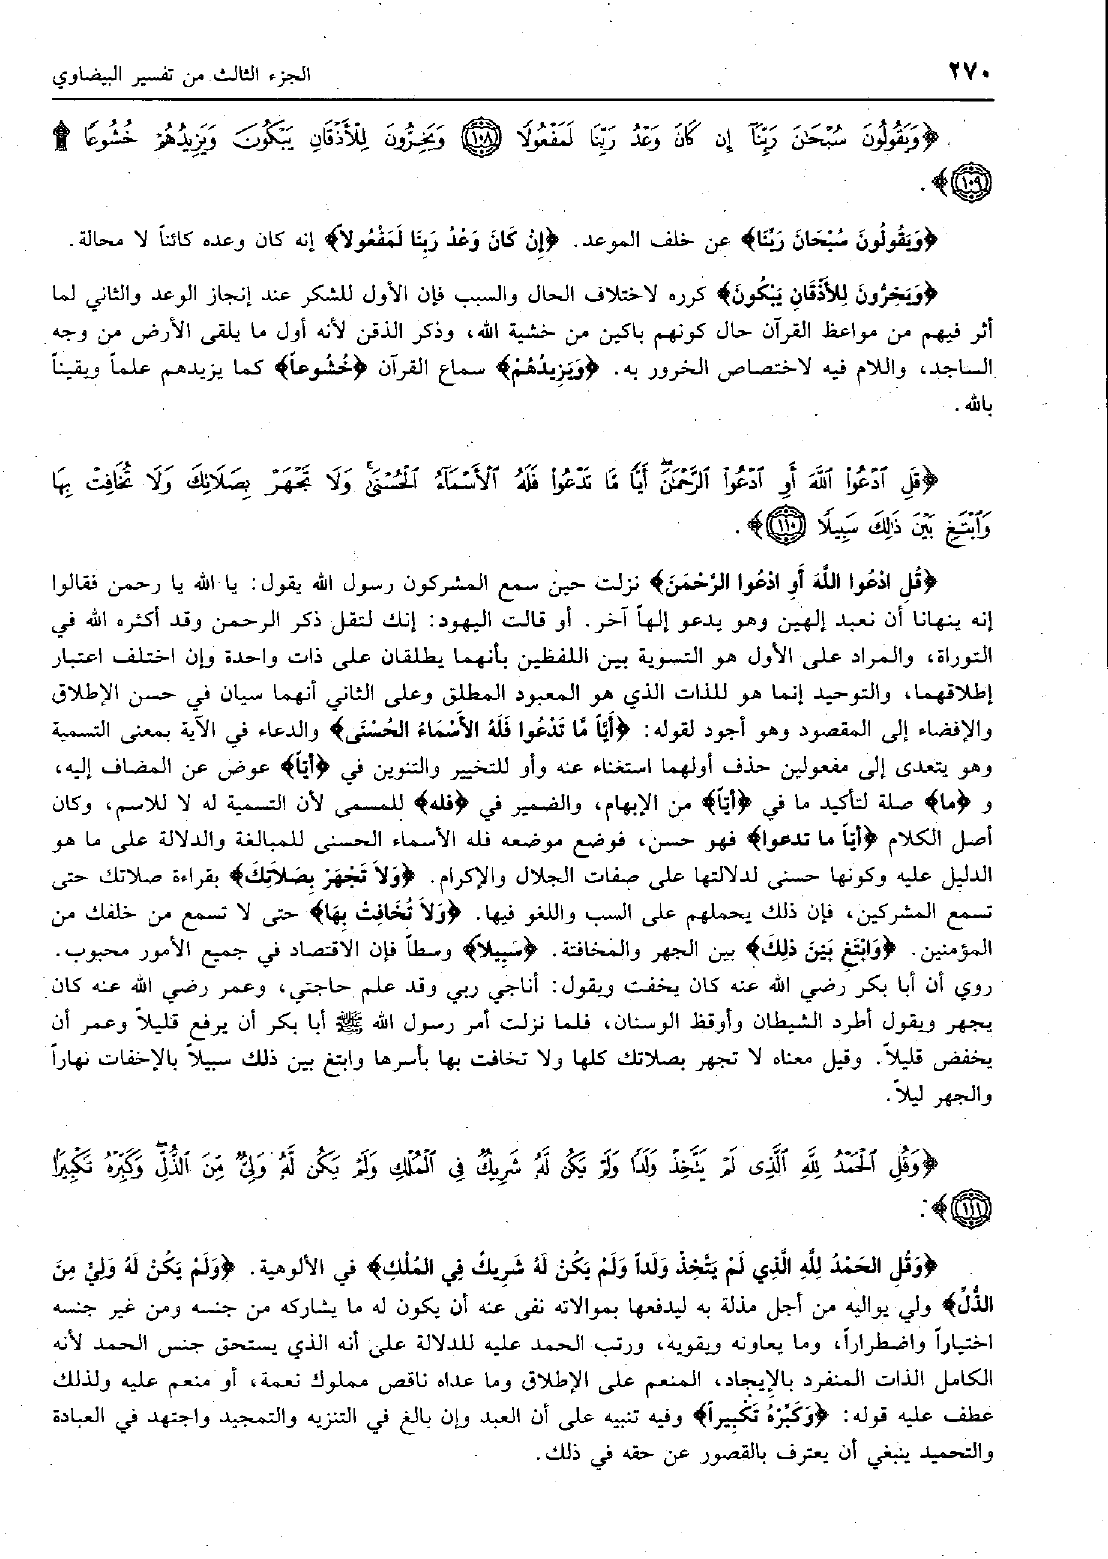 ٢٧٠
الجزء الثالث من تفسير البيضاوي
﴿وَيَقُولُونَ سُبْحَٰنَ رَبِّنَآ إِن كَانَ وَعْدُ رَبِّنَا لَمَفْعُولًا ﴿١٠٨﴾ وَيَخِرُّونَ لِلْأَذْقَانِ يَبْكُونَ وَيَزِيدُهُمْ خُشُوعًا ۩
﴿١٠٩﴾﴾.
﴿وَيَقُولُونَ سُبْحَانَ رَبِّنَا﴾ عن خلف الموعد. ﴿إِنْ كَانَ وَعْدُ رَبِنَا لَمَفْعُولاً﴾ إنه كان وعده كائناً لا محالة.
﴿وَيَخِرُّونَ لِلأَذْقَانِ يَبْكُونَ﴾ كرره لاختلاف الحال والسبب فإن الأول للشكر عند إنجاز الوعد والثاني لما
أثر فيهم من مواعظ القرآن حال كونهم باكين من خشية الله، وذكر الذقن لأنه أول ما يلقى الأرض من وجه
الساجد، واللام فيه لاختصاص الخرور به. ﴿وَيَزِيدُهُمْ﴾ سماع القرآن ﴿خُشُوعاً﴾ كما يزيدهم علماً ويقيناً
بالله.
﴿قُلِ ٱدْعُوا۟ ٱللَّهَ أَوِ ٱدْعُوا۟ ٱلرَّحْمَٰنَ ۖ أَيًّا مَّا تَدْعُوا۟ فَلَهُ ٱلْأَسْمَآءُ ٱلْحُسْنَىٰ ۚ وَلَا تَجْهَرْ بِصَلَاتِكَ وَلَا تُخَافِتْ بِهَا
وَٱبْتَغِ بَيْنَ ذَٰلِكَ سَبِيلًا ﴿١١٠﴾﴾.
﴿قُلِ ادْعُوا اللَّهَ أَوِ ادْعُوا الرَّحْمَنَ﴾ نزلت حين سمع المشركون رسول الله يقول: يا الله يا رحمن فقالوا
إنه ينهانا أن نعبد إلهين وهو يدعو إلهاً آخر. أو قالت اليهود: إنك لتقل ذكر الرحمن وقد أكثره الله في
التوراة، والمراد على الأول هو التسوية بين اللفظين بأنهما يطلقان على ذات واحدة وإن اختلف اعتبار
إطلاقهما، والتوحيد إنما هو للذات الذي هو المعبود المطلق وعلى الثاني أنهما سيان في حسن الإطلاق
والإفضاء إلى المقصود وهو أجود لقوله: ﴿أَيّاً مَّا تَدْعُوا فَلَهُ الأَسْمَاءُ الحُسْنَى﴾ والدعاء في الآية بمعنى التسمية
وهو يتعدى إلى مفعولين حذف أولهما استغناء عنه وأو للتخيير والتنوين في ﴿أَيّاً﴾ عوض عن المضاف إليه،
و ﴿ما﴾ صلة لتأكيد ما في ﴿أَيّاً﴾ من الإبهام، والضمير في ﴿فله﴾ للمسمى لأن التسمية له لا للاسم، وكان
أصل الكلام ﴿أَيّاً ما تدعوا﴾ فهو حسن، فوضع موضعه فله الأسماء الحسنى للمبالغة والدلالة على ما هو
الدليل عليه وكونها حسنى لدلالتها على صفات الجلال والإكرام. ﴿وَلاَ تَجْهَرْ بِصَلاَتِكَ﴾ بقراءة صلاتك حتى
تسمع المشركين، فإن ذلك يحملهم على السب واللغو فيها. ﴿وَلاَ تُخَافِتْ بِهَا﴾ حتى لا تسمع من خلفك من
المؤمنين. ﴿وَابْتَغِ بَيْنَ ذَلِكَ﴾ بين الجهر والمخافتة. ﴿سَبِيلاً﴾ وسطاً فإن الاقتصاد في جميع الأمور محبوب.
روي أن أبا بكر رضي الله عنه كان يخفت ويقول: أناجي ربي وقد علم حاجتي، وعمر رضي الله عنه كان
يجهر ويقول أطرد الشيطان وأوقظ الوسنان، فلما نزلت أمر رسول الله ﷺ أبا بكر أن يرفع قليلاً وعمر أن
يخفض قليلاً. وقيل معناه لا تجهر بصلاتك كلها ولا تخافت بها بأسرها وابتغ بين ذلك سبيلاً بالإخفات نهاراً
والجهر ليلاً.
﴿وَقُلِ ٱلْحَمْدُ لِلَّهِ ٱلَّذِى لَمْ يَتَّخِذْ وَلَدًا وَلَمْ يَكُن لَّهُۥ شَرِيكٌ فِى ٱلْمُلْكِ وَلَمْ يَكُن لَّهُۥ وَلِىٌّ مِّنَ ٱلذُّلِّ ۖ وَكَبِّرْهُ تَكْبِيرًا
﴿١١١﴾﴾:
﴿وَقُلِ الحَمْدُ لِلَّهِ الَّذِي لَمْ يَتَّخِذْ وَلَداً وَلَمْ يَكُنْ لَهُ شَرِيكٌ فِي المُلْكِ﴾ في الألوهية. ﴿وَلَمْ يَكُنْ لَهُ وَلِيٌّ مِنَ
الذُّلِّ﴾ ولي يواليه من أجل مذلة به ليدفعها بموالاته نفى عنه أن يكون له ما يشاركه من جنسه ومن غير جنسه
اختياراً واضطراراً، وما يعاونه ويقويه، ورتب الحمد عليه للدلالة على أنه الذي يستحق جنس الحمد لأنه
الكامل الذات المنفرد بالإيجاد، المنعم على الإطلاق وما عداه ناقص مملوك نعمة، أو منعم عليه ولذلك
عطف عليه قوله: ﴿وَكَبِّرْهُ تَكْبِيراً﴾ وفيه تنبيه على أن العبد وإن بالغ في التنزيه والتمجيد واجتهد في العبادة
والتحميد ينبغي أن يعترف بالقصور عن حقه في ذلك.